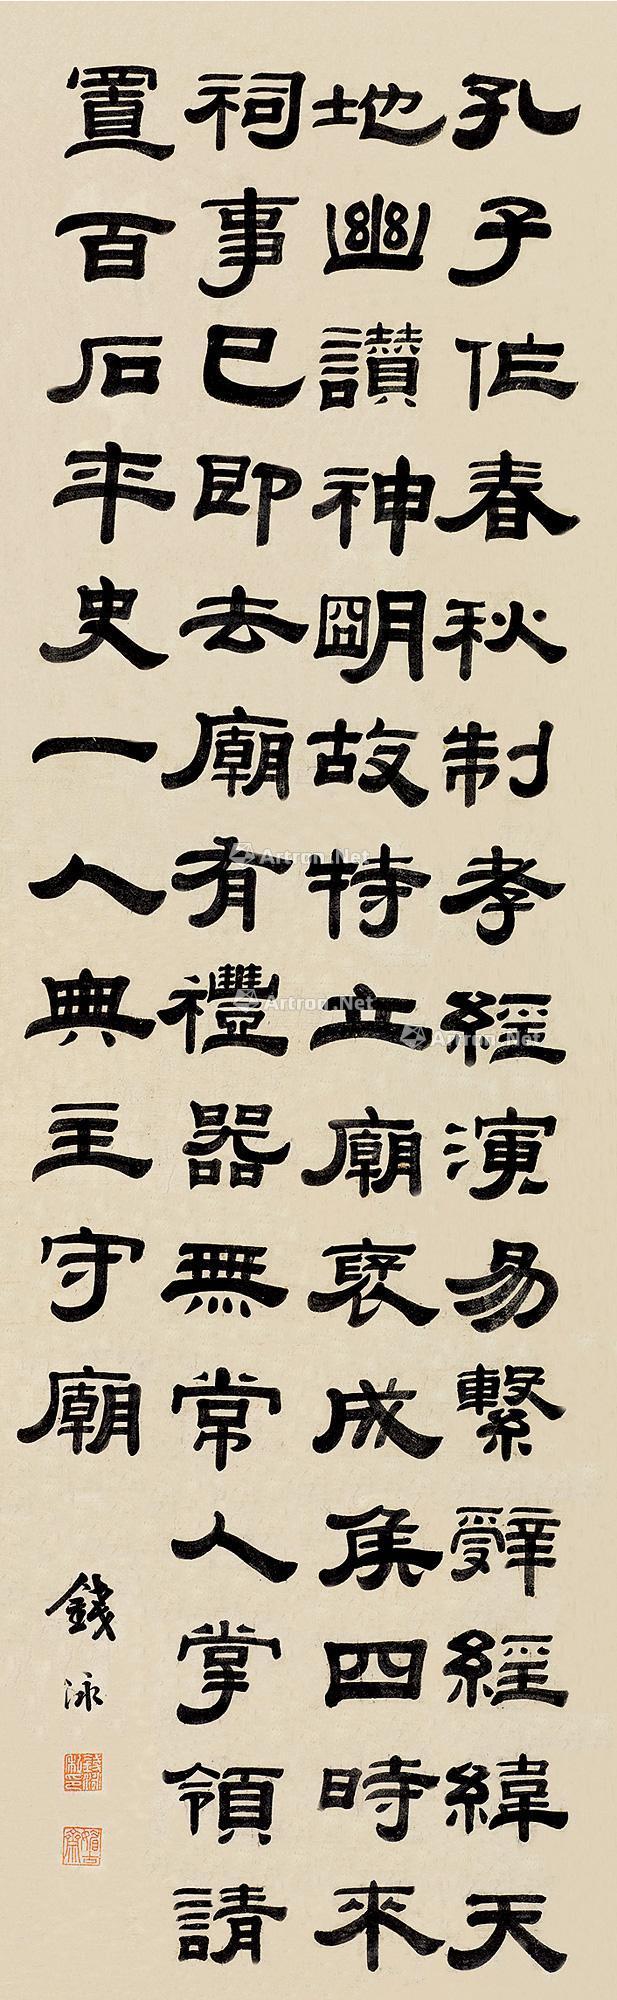 孔子作春秋制孝經演易繫辭經緯天
地幽讚神明故特立廟襃成侯四時來
祠事已即去廟有禮器無常人掌領請
置百石卒史一人典主守廟
錢泳
Artron.Net
Artron.Net
Artron.Net